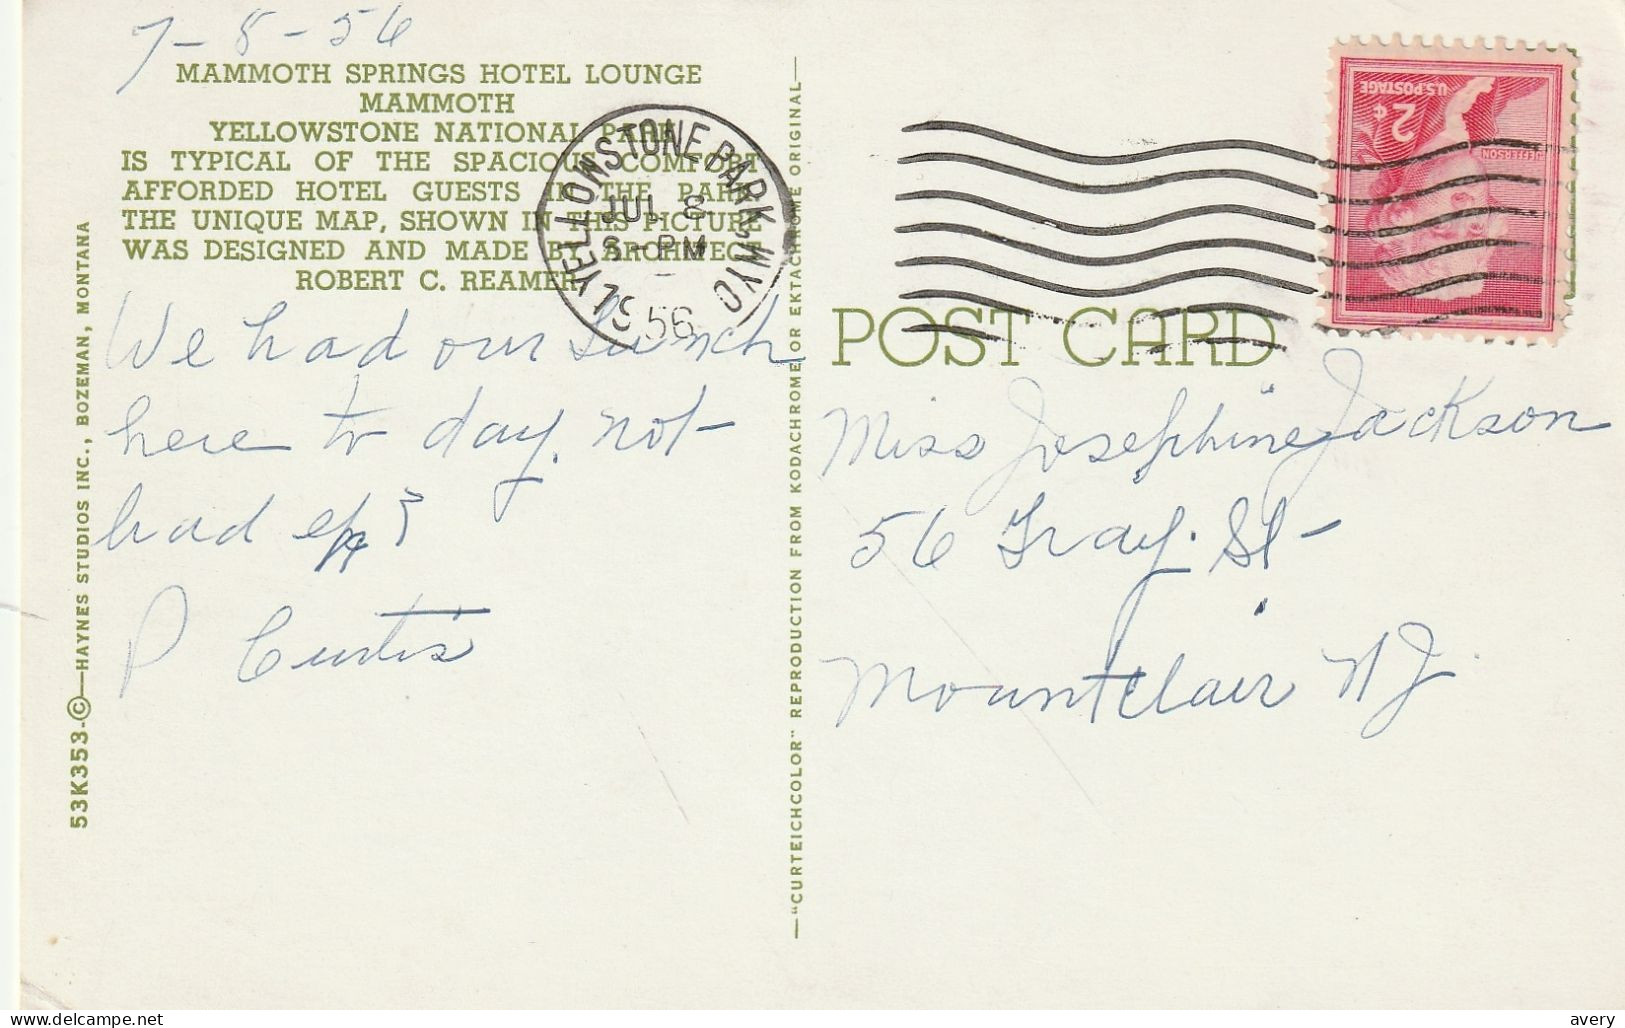 7-8-56
MAMMOTH SPRINGS HOTEL LOUNGE
MAMMOTH
YELLOWSTONE NATIONAL PARK
IS TYPICAL OF THE SPACIOUS COMFORT
AFFORDED HOTEL GUESTS IN THE PARK
THE UNIQUE MAP, SHOWN IN THIS PICTURE
WAS DESIGNED AND MADE BY ARCHITECT
ROBERT C. REAMER
We had our Lunch
here to day. not
had
P Curtis
53K353-©—HAYNES STUDIOS INC., BOZEMAN, MONTANA
YELLOWSTONE PARK, WYO
JUL 8
PM
1956
—"CURTEICHCOLOR" REPRODUCTION FROM KODACHROME OR EKTACHROME ORIGINAL—
U.S. POSTAGE
2¢
JEFFERSON
POST CARD
Miss Josephine Jackson
56 Gray. St-
Mountclair NJ
avery